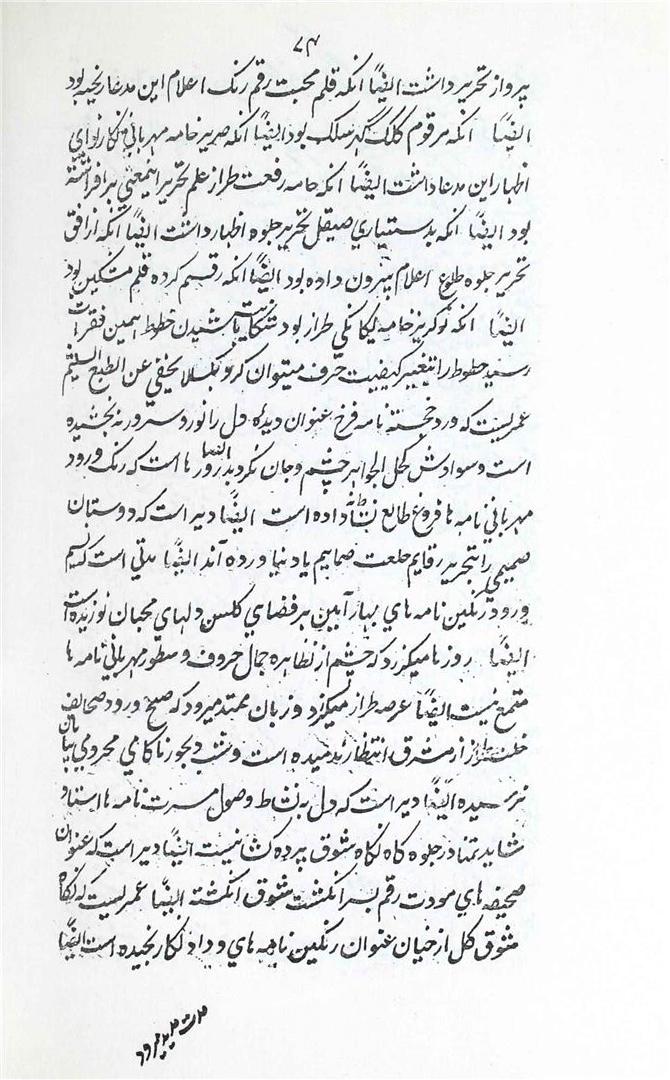 ۷۴
پرواز تحریر داشت ایضاً انکه قلم محبت رقم رنک اعلام این مدعا ریخته بود
ایضاً انکه مرقوم کلک گهر سلک بود ایضاً انکه صریر خامه مهربانی نکار نوای
اظهار این مدعا داشت ایضاً انکه خامه رفعت طراز علم تحریر اینمعنی بر افراشته
بود ایضاً انکه بدستیاری صیقل تحریر جلوه اظهار داشت ایضاً انکه از افق
تحریر جلوه طلوع اعلام بیرون داده بود ایضاً انکه رقم کرده قلم مشکین بود
ایضاً انکه نوکریز خامه یکانکی طراز بود شکایت خطوط همین فقرات
رسید خطوط را بتغییر کیفیت حرف میتوان کرد کمالا یخفی عن الطبع السلیم
عمریست که ورود خجسته نامه فرخ عنوان دیده دل را نور و سرور نه بخشیده
است و سوادش کحل الجواهر چشم و جان نکردید ایضاً روزها است که رنک ورود
مهربانی نامه ها فروغ طالع نشاط نداده است ایضاً دیر است که دوستان
صمیمی را بتحریر رقایم یاد نیاورده اند ایضاً مدتی است که نسیم
ورود رنکین نامه های بهار آیین بر فضای کلشن دلهای محبان نوزیده است
ایضاً روزها میکزرد که چشم از نظاره جمال حروف و سطور مهربانی نامه ها
متمتع نیست ایضاً عرصه دراز میکزرد و زمان ممتد میرود که صبح ورود صحایف
از مشرق انتظار ندمیده است و شب دیجور ناکامی محرومی بپایان
نرسیده ایضاً دیر است که دل به نشاط وصول مسرت نامه ها اشنا و
شاهد تمنا در جلوه کاه نکاه شوق پرده کشا نیست ایضاً دیر است که عنوان
صحیفه های مودت رقم بسر انکشت شوق نکشته ایضاً عمریست که نکاه
شوق کل از خیابان عنوان رنکین نامه های وداد نکار نچیده است ایضاً
مدت مدید